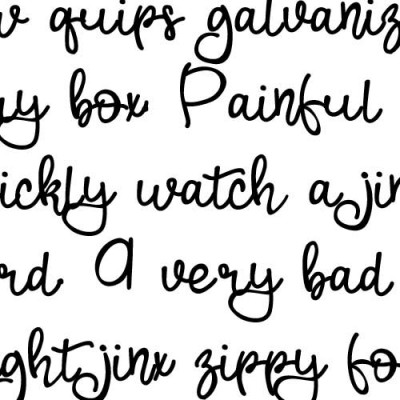 w quips galvaniz
ry box Painful
ickly watch a jin
rd A very bad
ght jinx zippy fo